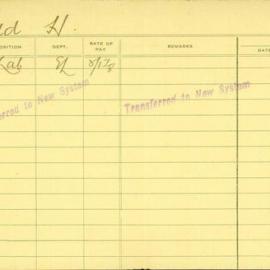 ld H.
OSITION DEPT. RATE OF PAY REMARKS DATE
Lab EL 8/1½
erred to New System Transferred to New System